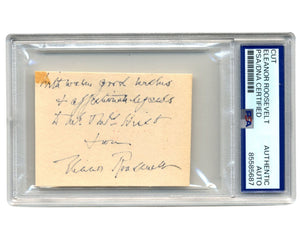 with warm good wishes
& affectionate regards
to Mr & Mrs
from
Eleanor Roosevelt
CUT
ELEANOR ROOSEVELT
PSA/DNA CERTIFIED
AUTHENTIC
AUTO
85585687